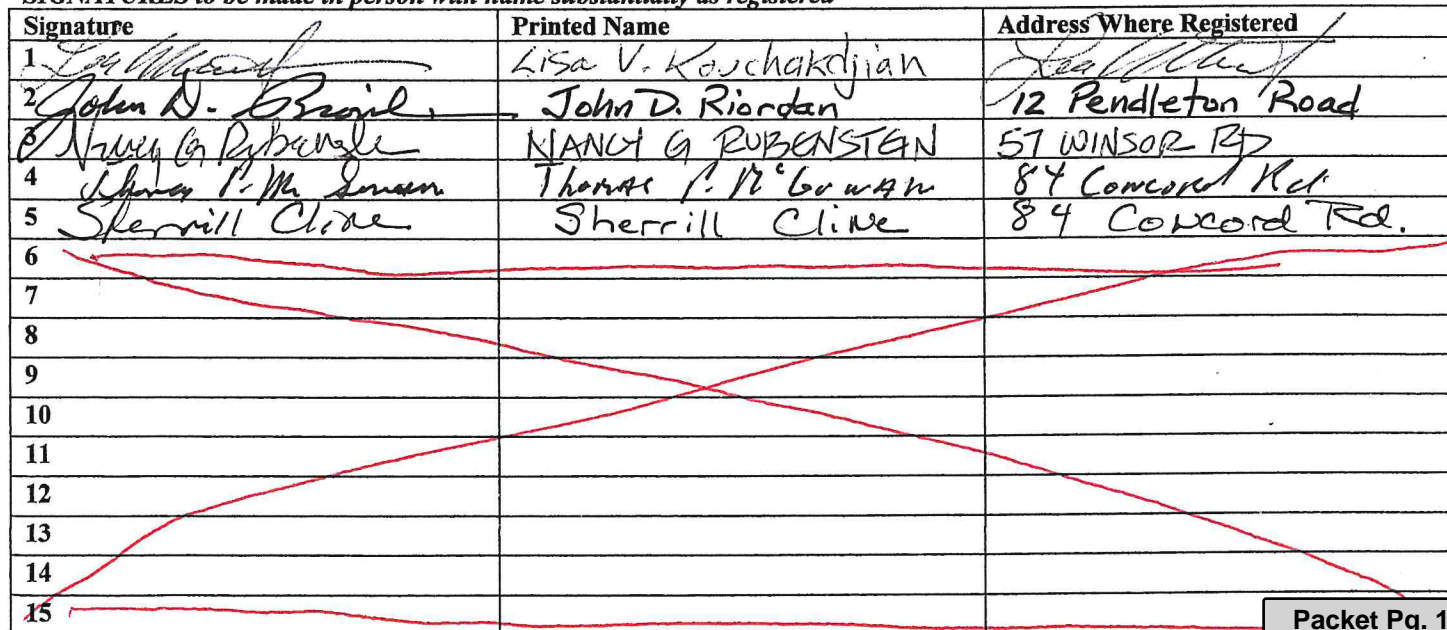 SIGNATURES to be made in person with name substantially as registered
Signature Printed Name Address Where Registered
1 Lisa V. Kouchakdjian
2 John D. Riordan 12 Pendleton Road
3 NANCY G RUBENSTEIN 57 WINSOR RD
4 Thomas P. 84 Concord Rd
5 Sherrill Cline Sherrill Cline 84 Concord Rd.
6
7
8
9
10
11
12
13
14
15
Packet Pg. 1